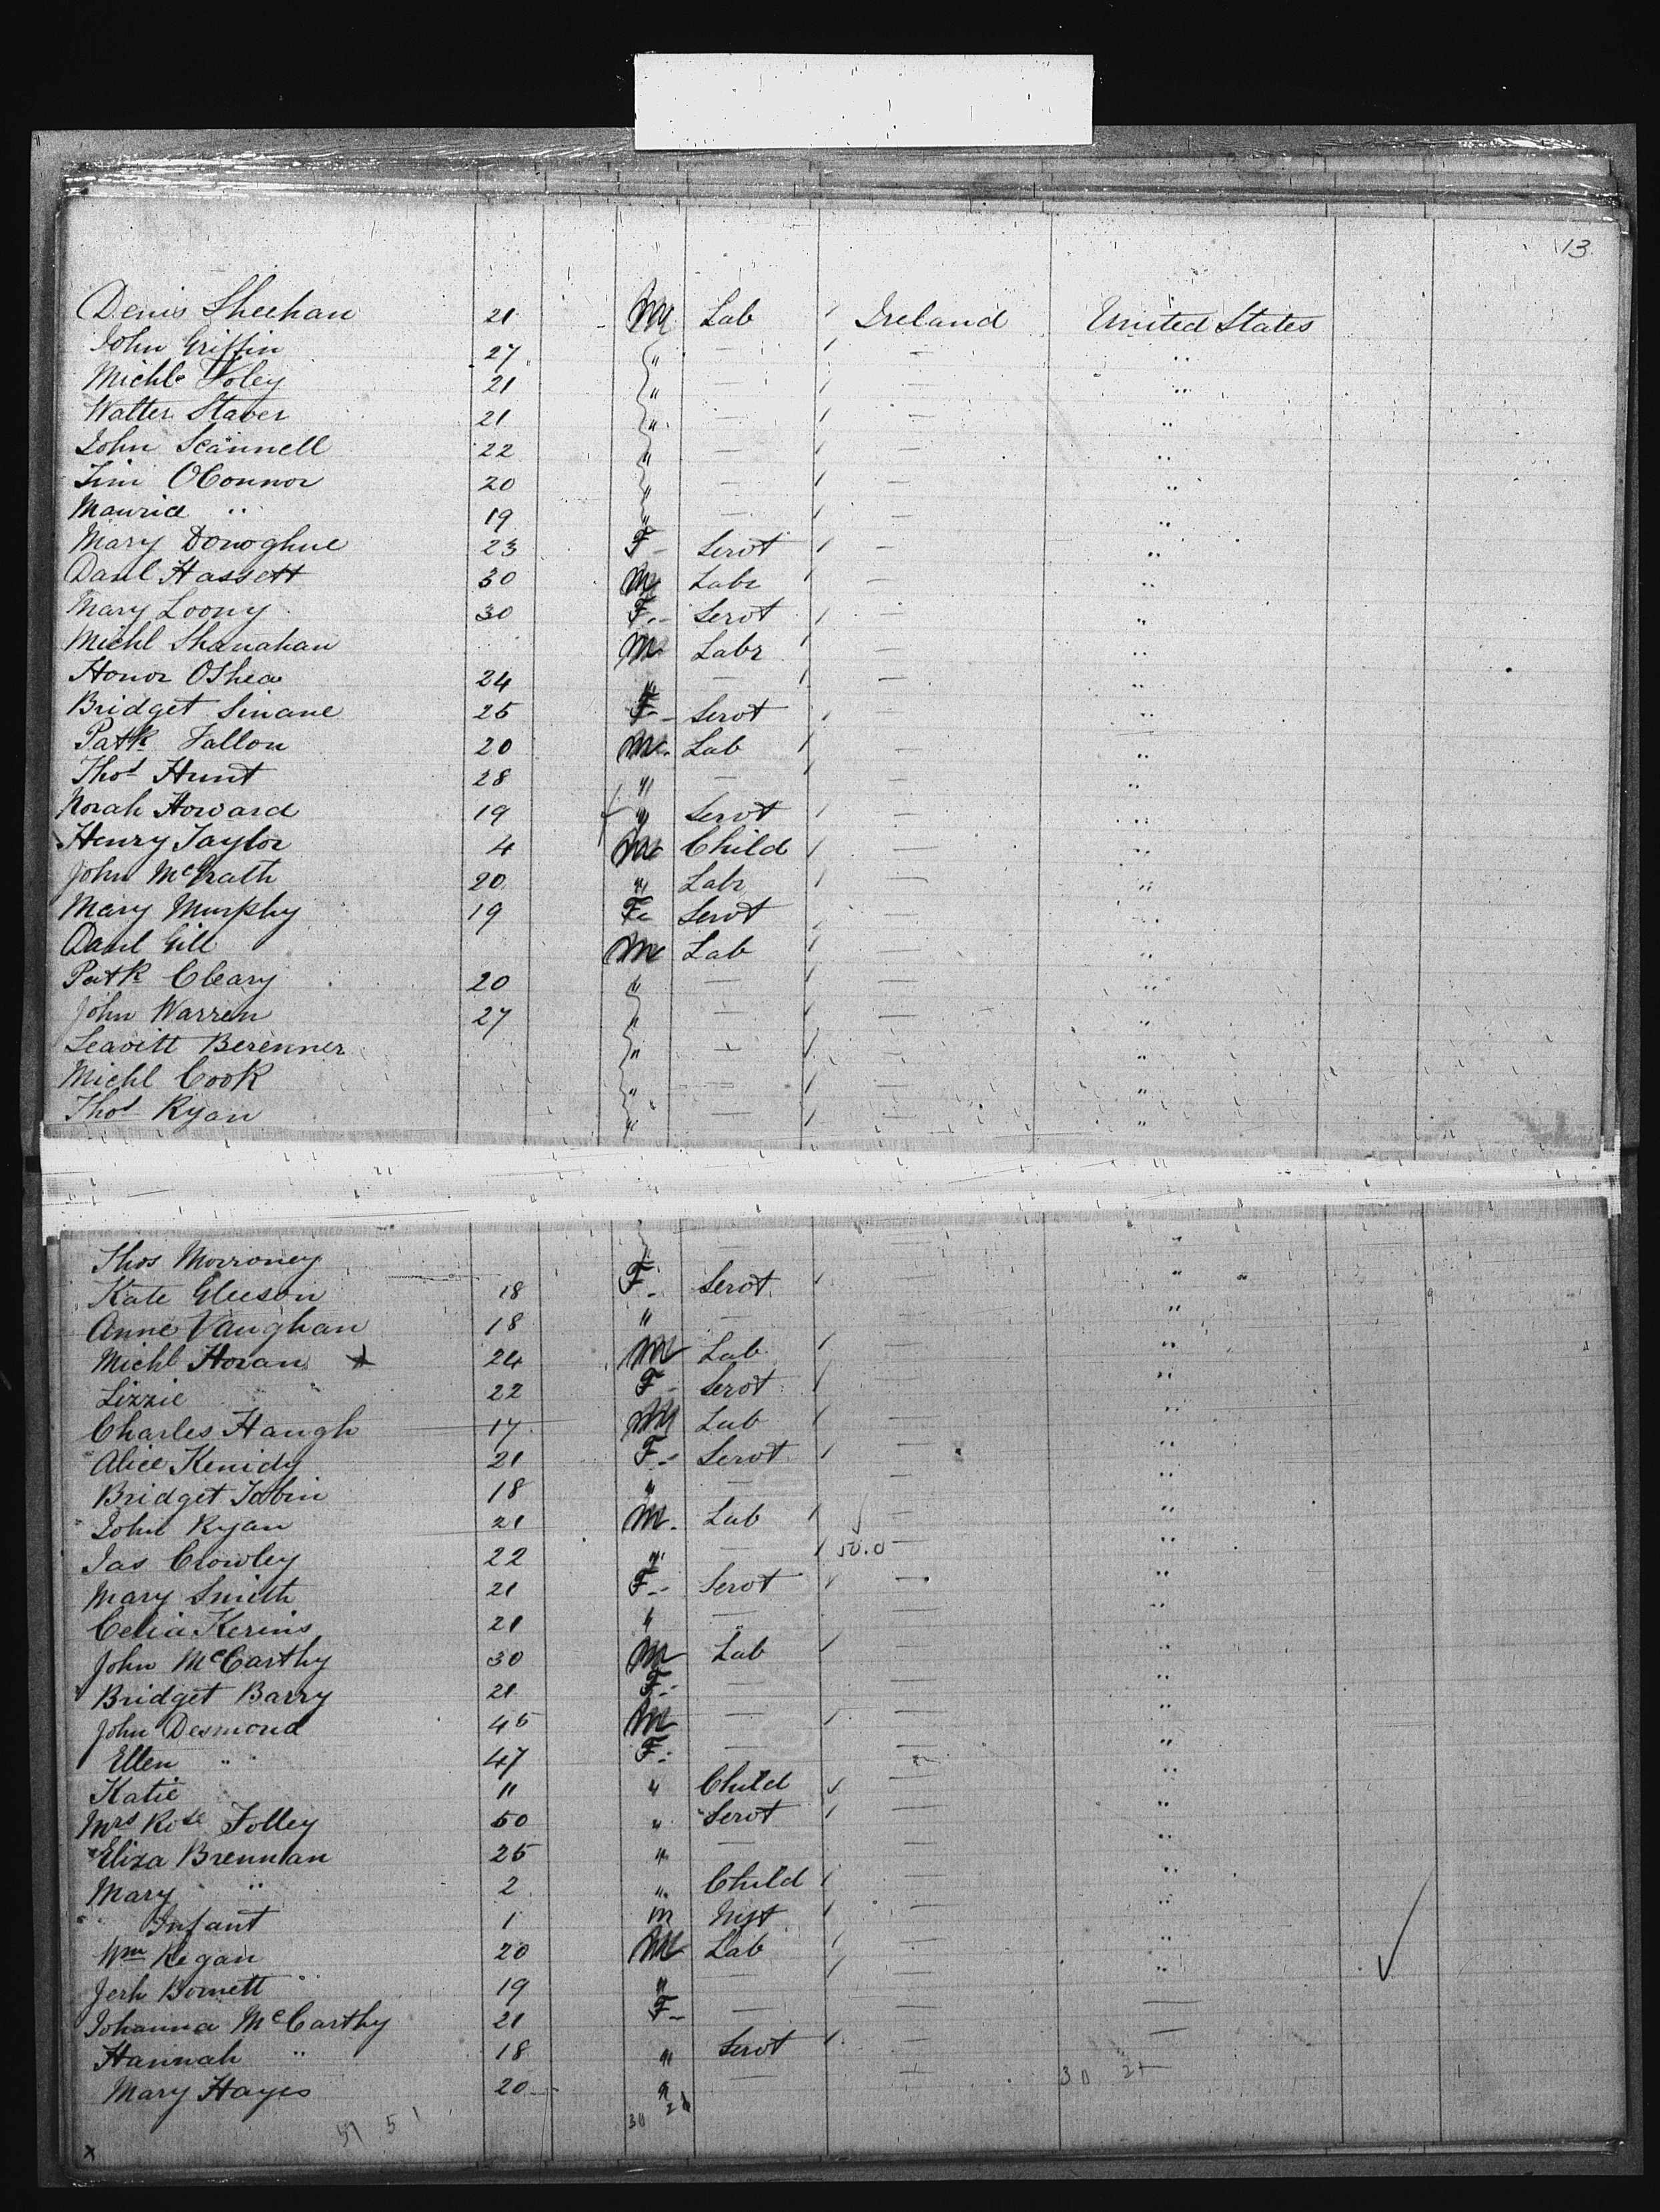 13
Denis Sheehan 21 M Lab Ireland United States
John Griffin 27 " — — "
Michl Foley 21 " — — "
Walter Staver 21 " — — "
John Scannell 22 " — — "
Tim OConnor 20 " — — "
Maurice " 19 " — — "
Mary Donoghue 23 F Servt — "
Danl Hassett 30 M Labr — "
Mary Loony 30 F Servt — "
Michl Shanahan M Labr — "
Honor OShea 24 " — — "
Bridget Sinane 25 F Servt — "
Patk Fallon 20 M Lab — "
Thos Hunt 28 " — — "
Norah Howard 19 " Servt — "
Henry Taylor 4 M Child — "
John McGrath 20 " Labr — "
Mary Murphy 19 F Servt — "
Danl Gill M Lab — "
Patk Cleary 20 " — — "
John Warren 27 " — — "
Leavitt Berenner " — — "
Michl Cook " — — "
Thos Ryan " — — "
Thos Morroney " — — "
Kate Gleeson 18 F Servt — " "
Anne Vaughan 18 " — — "
Michl Horan 24 M Lab — "
Lizzie " 22 F Servt — "
Charles Haugh 17 M Lab — "
Alice Kenidy 21 F Servt — "
Bridget Tobin 18 " — — "
John Ryan 21 M Lab — "
Jas Crowley 22 " — — "
Mary Smith 21 F Servt — "
Celia Kerins 21 " — — "
John McCarthy 30 M Lab — "
Bridget Barry 21 F — — "
John Desmond 45 M — — "
Ellen " 47 F — — "
Katie " 11 " Child — "
Mrs Rose Folley 50 " Servt — "
Eliza Brennan 25 " — — "
Mary " 2 " Child — "
" Infant 1 m — "
Wm Regan 20 M Lab — "
Jerh Bornett 19 " — — "
Johanna McCarthy 21 F — — —
Hannah " 18 " Servt — —
Mary Hayes 20 " — —
30 21
51 51 30 21
x